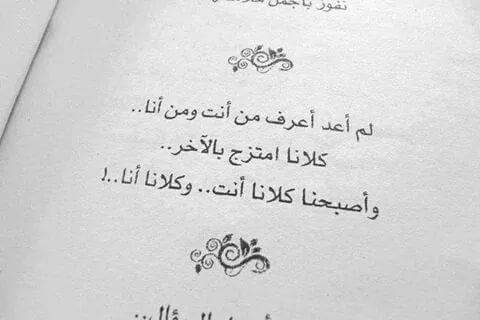 نفوز بأجمل
لم أعد أعرف من أنت ومن أنا..
كلانا امتزج بالآخر..
وأصبحنا كلانا أنت.. وكلانا أنا..!